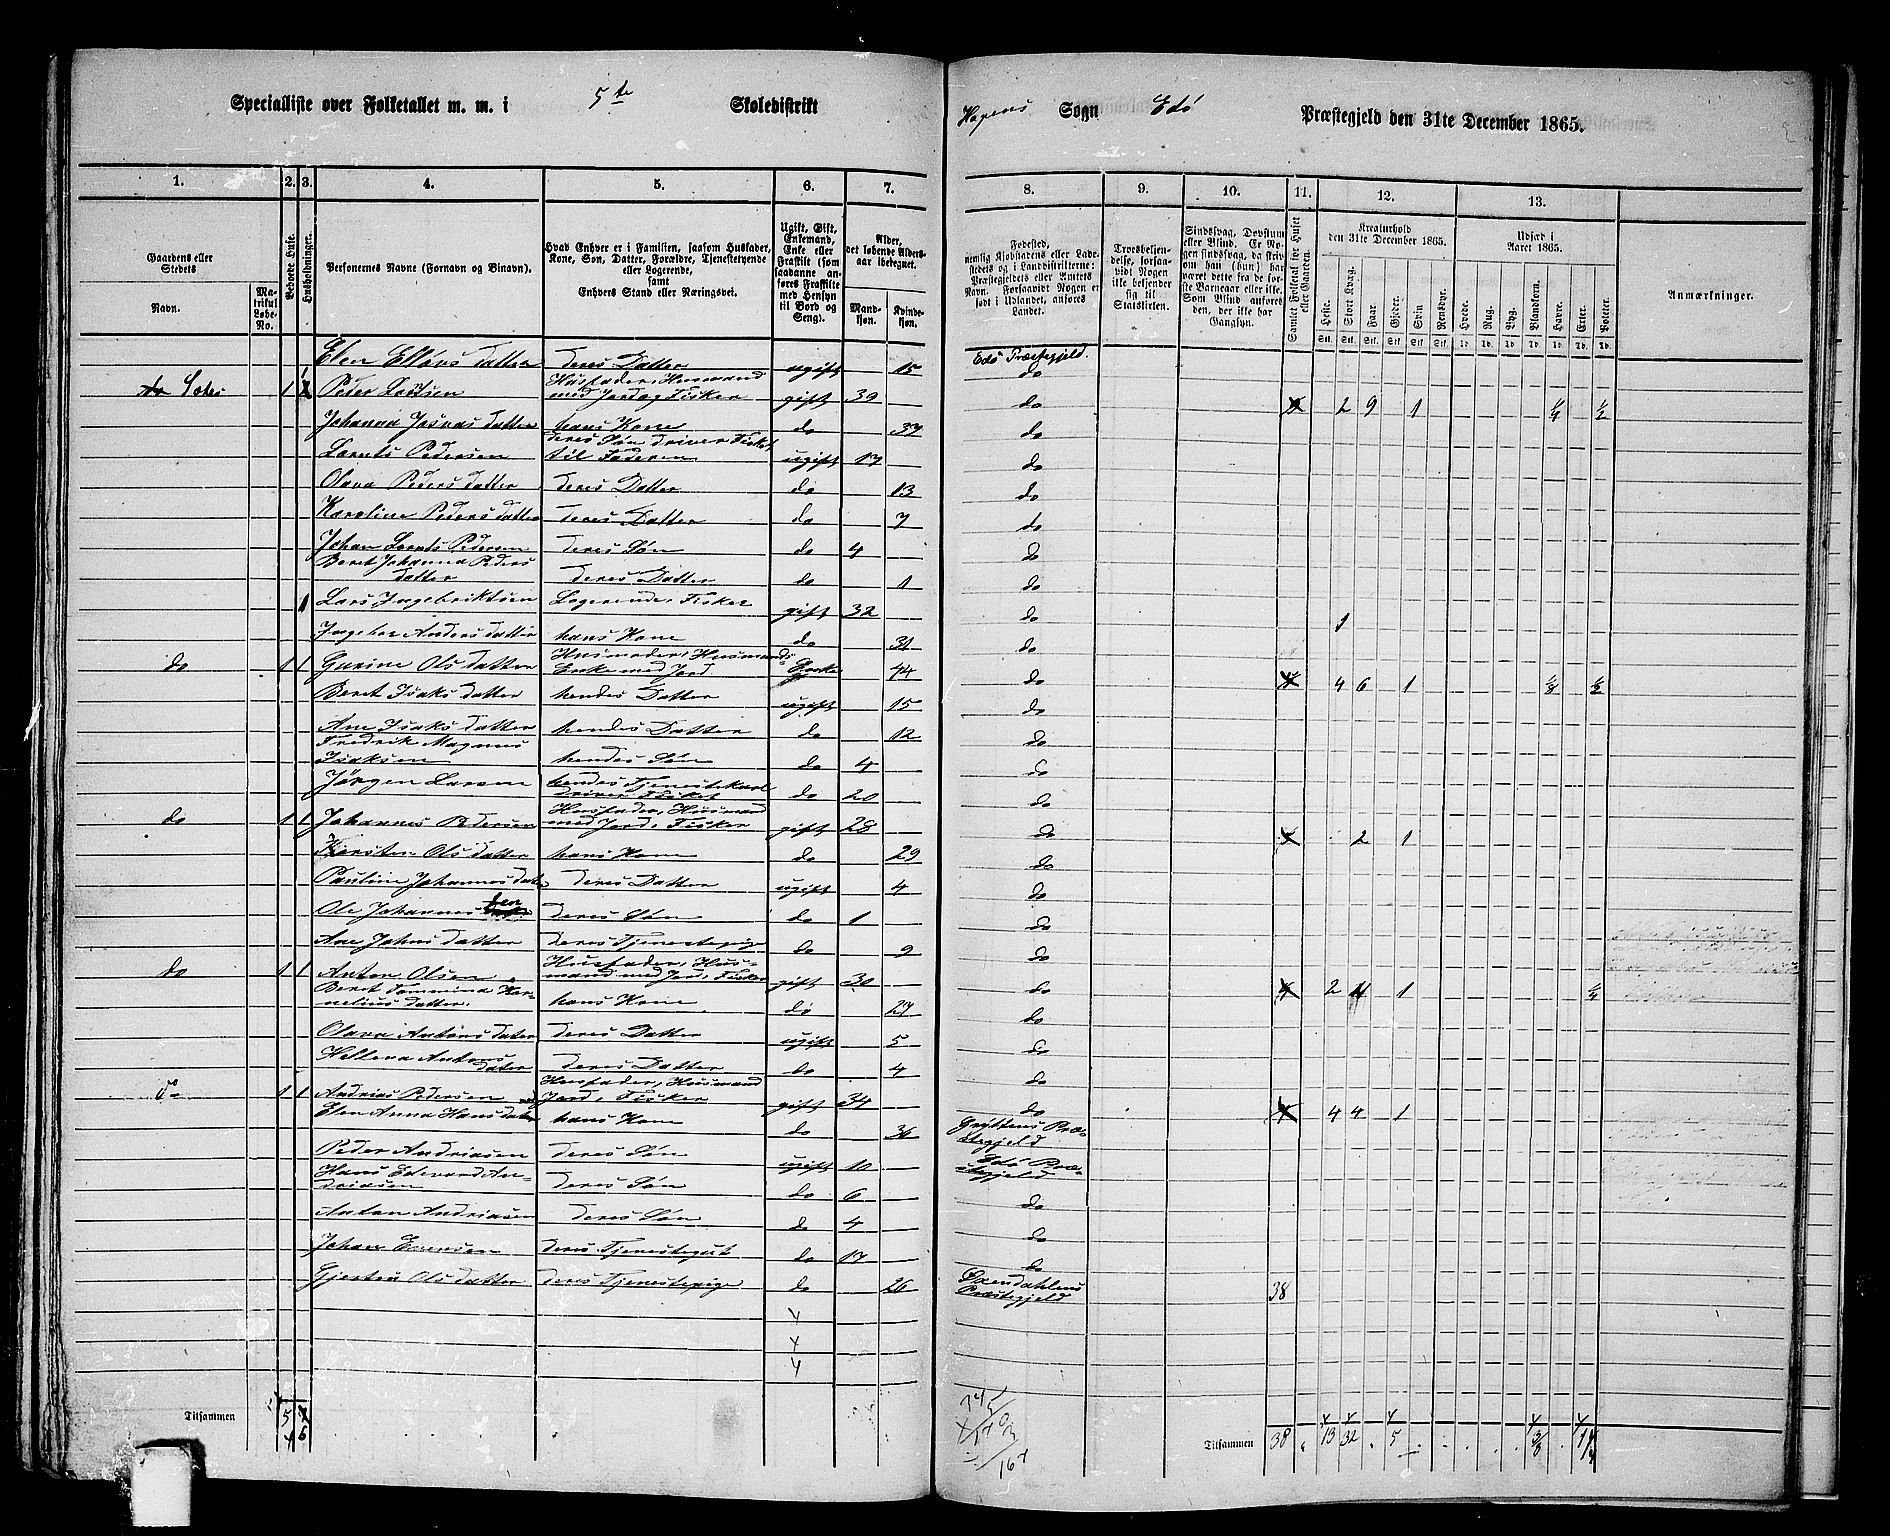 Specialliste over Folketallet m. m. i 5te Skoledistrikt
Hopens Sogn Edø Præstegjeld den 31te December 1865.
1. 2. 3. 4. 5. 6. 7. 8. 9. 10. 11. 12. 13.
Gaardens eller Stedets
Navn.
Matrikul Løbe-No.
Beboede Huse.
Husholdninger.
Personernes Navne (Fornavn og Binavn).
Hvad Enhver er i Familien, saasom Husfader, Kone, Søn, Datter, Forældre, Tjenestetyende eller Logerende, samt Enhvers Stand eller Næringsvei.
Ugift, Gift, Enkemand, Enke eller Fraskilt (som saadanne anføres Fraskilte med Hensyn til Bord og Seng).
Alder, det løbende Aldersaar iberegnet.
Mandkøn. Kvindekøn.
Fødested, nemlig Kjøbstadens eller Ladestedets og i Landdistrikterne: Præstegjeldets eller Amtets Navn. Forsaavidt Nogen er født i Udlandet, anføres Landet.
Troesbekjendelse, forsaavidt Nogen ikke bekjender sig til Statskirken.
Sindssvag, Døvstum eller Blind. Er Nogen sindssvag, da skrives om han (hun) har været dette fra de første Barneaar eller ikke. Som Blind anføres den, der ikke har Gangsyn.
Samlet Folketal for Huset eller Gaarden.
Kreaturhold den 31te December 1865.
Heste. Stort Kvæg. Faar. Gjeder. Svin. Rensdyr.
Udsæd i Aaret 1865.
Hvede. Rug. Byg. Blandkorn. Havre. Erter. Poteter.
Anmærkninger.
Elen Ellevs datter deres Datter ugift 15 Edø Præstegjeld. do
1 Peder Lorntsen Husfader, Husmand med Jord og Fisker gift 39 do 2 9 1 1/4 1/2
Johanna Josvas datter hans Kone do 37 do
Lornts Pedersen deres Søn driver Fisket til Faderen ugift 17 do
Olava Peders datter deres Datter do 13 do
Karoline Peders datter deres Datter do 7 do
Johan Lornts Pedersen deres Søn do 4 do
Beret Johanna Peders datter deres Datter do 1 do
1 Lars Ingebriktsen Logerende, Fisker gift 32 do 1
Ingebor Anders datter hans Kone do 31
do 1 1 Gurine Ols datter Husmoder, Husmands Enke med Jord Enke 44 do 4 6 1 1/8 1/2
Beret Isaks datter hendes Datter ugift 15 do
Ane Isaks datter hendes Datter do 12 do
Fredrik Magnus Isaksen hendes Søn do 4 do
Jørgen Larsen hendes Tjenestekarl driver Fisket do 20 do
do 1 1 Johannes Pedersen Husfader, Husmand med Jord, Fisker gift 28 do 2 1
Kjersten Ols datter hans Kone do 29 do
Pauline Johannes dater deres Datter ugift 4 do
Ole Johannessen deres Søn do 1 do
Ane Johns datter deres Tjenestepige do 9 do
do 1 1 Anton Olsen Husfader, Husmand med Jord, Fisker gift 30 do 2 4 1 1/4
Beret Tommina Kornelius datter. hans Kone do 27 do
Olava Antons dater deres Datter ugift 5 do
Hellena Antons dater deres Datter do 4 do
do 1 1 Andrias Pedersen Husfader, Husmand Jord, Fisker gift 34 do 4 4 1
Elen Anna Hans dater hans Kone do 36 Gryttens Præstegjeld
Peder Andriasen deres Søn ugift 10 Edø Præstegjeld
Hans Edevard Andriasen deres Søn do 6 do
Anton Andriasen deres Søn do 4 do
Johan deres Tjenestegut do 17 do
Gjertru Ols datter deres Tjenestepige do 26 Præstegjeld 38
4
4
4
Tilsammen 5
4 6
Tilsammen 38 13 32 5 3/8